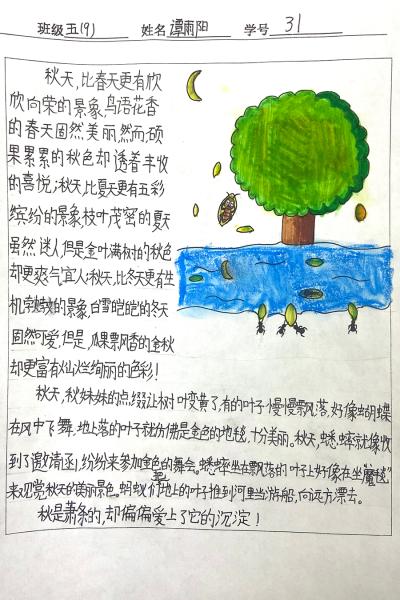 班级五(9) 姓名谭雨阳 学号31
秋天,比春天更有欣
欣向荣的景象,鸟语花香
的春天固然美丽,然而,硕
果累累的秋色却透着丰收
的喜悦;秋天,比夏天更有五彩
缤纷的景象,枝叶茂密的夏天
虽然迷人,但是金叶满树的秋色
却更爽气宜人;秋天,比冬天更有生
机勃勃的景象,白雪皑皑的冬天
固然可爱,但是,瓜果飘香的金秋
却更富有灿烂绚丽的色彩!
秋天,秋妹妹的点缀让树叶变黄了,有的叶子慢慢飘落,好像蝴蝶
在风中飞舞,地上落的叶子就仿佛是金色的地毯,十分美丽。秋天,蟋蟀就像收
到了邀请函,纷纷来参加金色的舞会。蟋蟀坐在飘落的叶子上好像在坐"魔毯"
来观赏秋天的美丽景色。蚂蚁们把地上的叶子推到河里当游船,向远方漂去。
秋是萧条的,却偏偏爱上了它的沉淀!